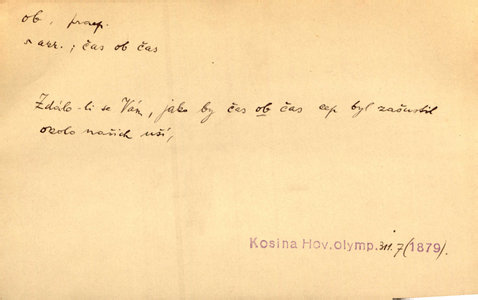 ob, praep.
s akk.; čas ob čas
Zdálo-li se Vám, jako by čas ob čas cep byl zašustil
okolo našich uší,
Kosina Hov. olymp. 311. 7 (1879).